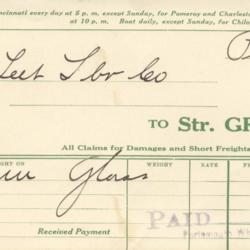 incinnati every day at 5 p. m. except Sunday, for Pomeroy and Charlest
at 10 p. m. Boat daily, except Sunday, for Chilo
Leet Lbr Co
TO Str. GR
All Claims for Damages and Short Freights
GHT ON WEIGHT RATE FREI
Glass
PAID
Portsmouth
Received Payment